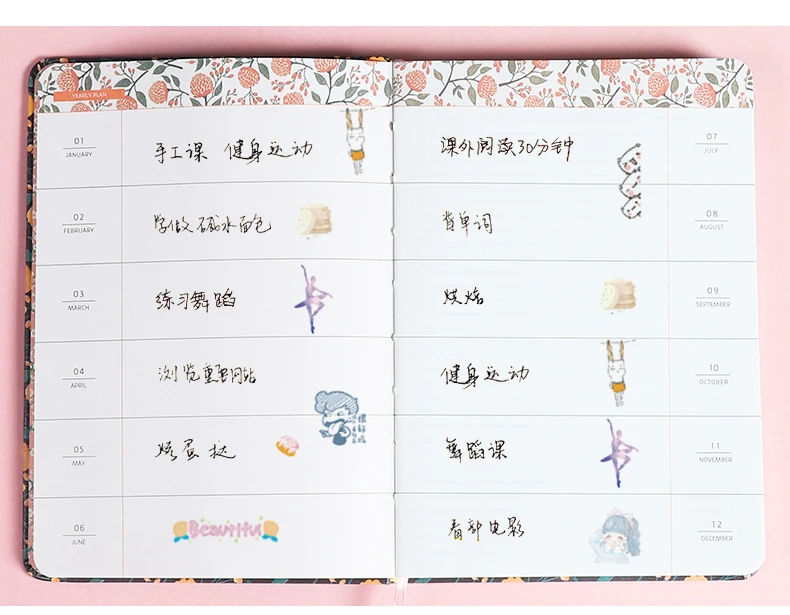 YEARLY PLAN
01
JANUARY
手工课 健身运动
02
FEBRUARY
学做碱水面包
03
MARCH
练习舞蹈
04
APRIL
浏览重要网站
05
MAY
烤蛋挞
06
JUNE
Beautiful
07
JULY
课外阅读30分钟
08
AUGUST
背单词
09
SEPTEMBER
烘焙
10
OCTOBER
健身运动
11
NOVEMBER
舞蹈课
12
DECEMBER
看部电影